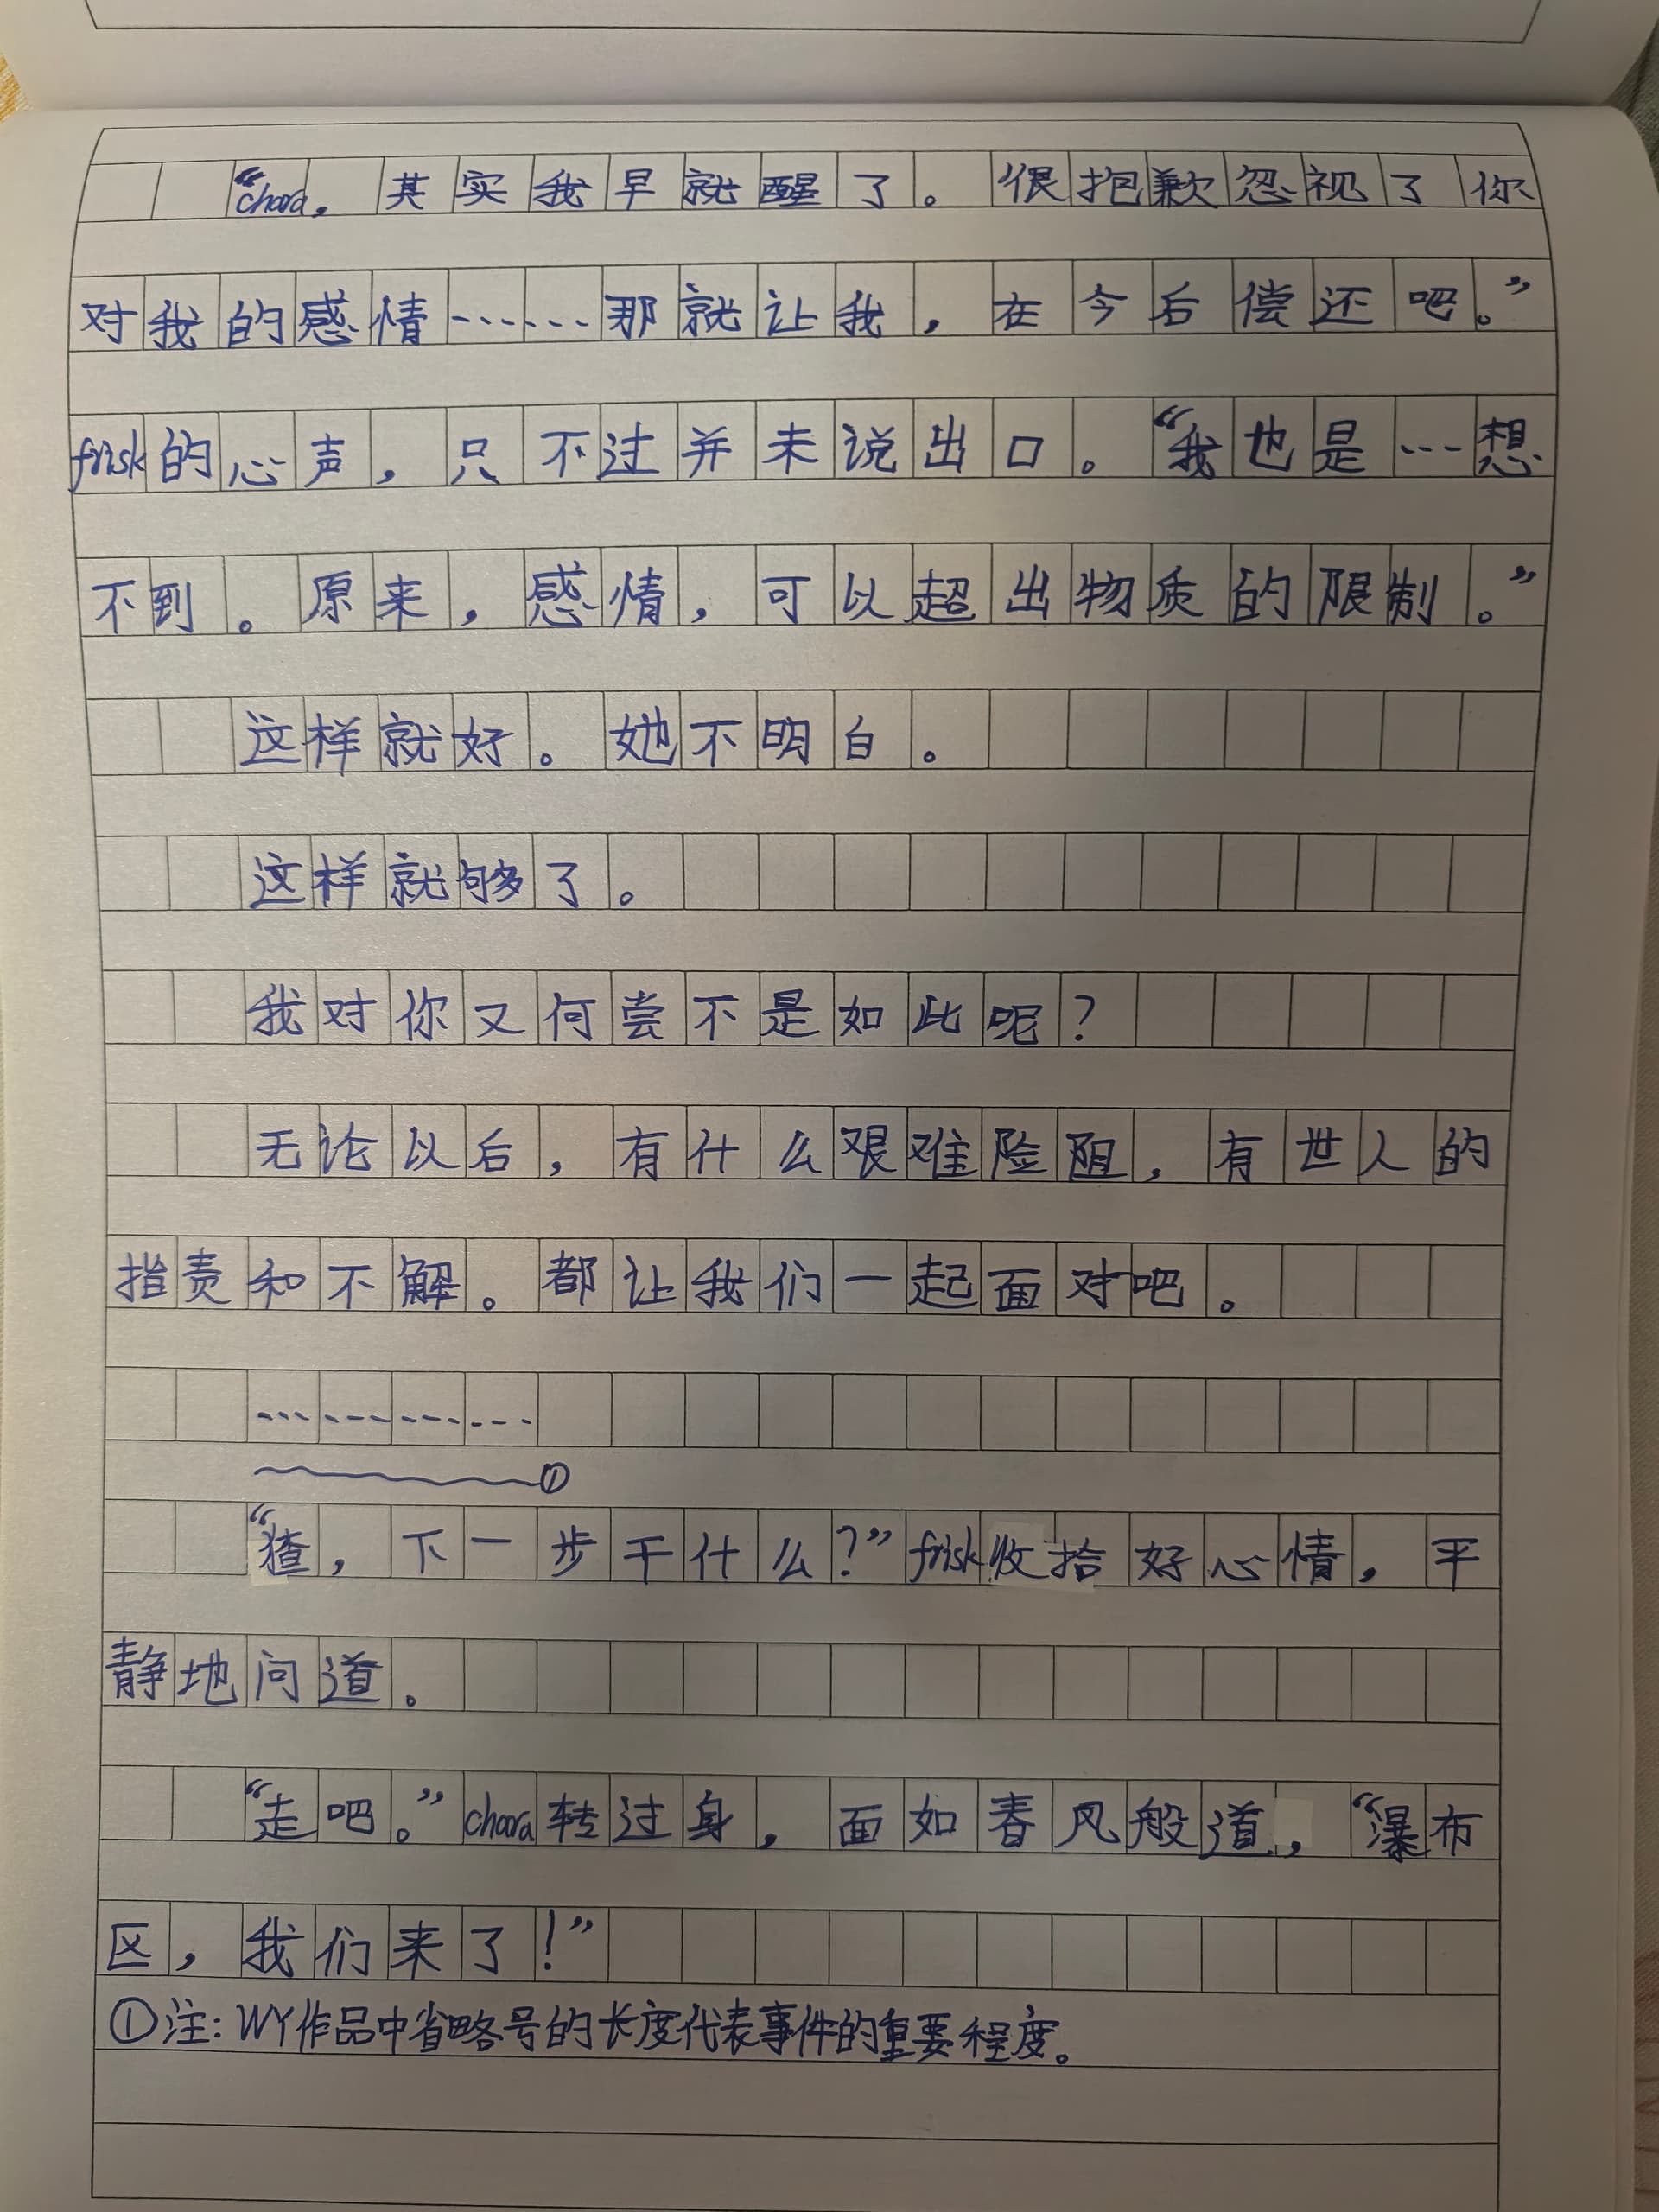 “chara，其实我早就醒了。很抱歉忽视了你
对我的感情……那就让我，在今后偿还吧。”
frisk的心声，只不过并未说出口。“我也是…想
不到。原来，感情，可以超出物质的限制。”
这样就好。她不明白。
这样就够了。
我对你又何尝不是如此呢？
无论以后，有什么艰难险阻，有世人的
指责和不解。都让我们一起面对吧。
…………
①
“猹，下一步干什么？”frisk收拾好心情，平
静地问道。
“走吧。”chara转过身，面如春风般道，“瀑布
区，我们来了！”
①注：WY作品中省略号的长度代表事件的重要程度。